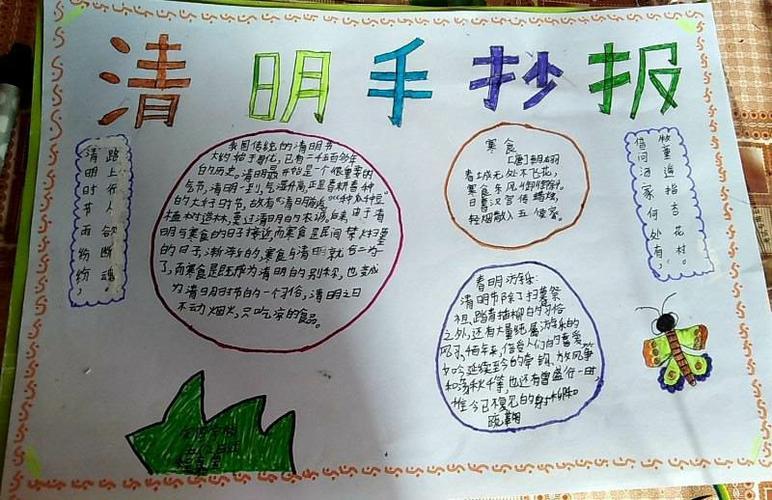 清明手抄报
清明时节雨纷纷,
路上行人欲断魂。
我国传统的清明节
大约始于周代,已有二千五百多年
的历史。清明最开始是一个很重要的
节气,清明一到,气温升高,正是春耕春种
的大好时节,故有“清明前后,种瓜种豆”
植树造林,莫过清明的农谚。后来,由于清
明与寒食的日子接近,而寒食是民间禁火扫墓
的日子,渐渐的,寒食与清明就合二为一
了,而寒食既成为清明的别称,也变成
为清明时节的一个习俗,清明之日
不动烟火,只吃凉的食品。
寒食
[唐]韩翃
春城无处不飞花,
寒食东风御柳斜。
日暮汉宫传蜡烛,
轻烟散入五侯家。
借问酒家何处有,
牧童遥指杏花村。
清明节除了扫墓祭
祖、踏青插柳的习俗
之外,还有大量纯属游乐的
风习,
延续至今的牵钩、放风筝
和荡秋千等,也还有曾盛行一时,